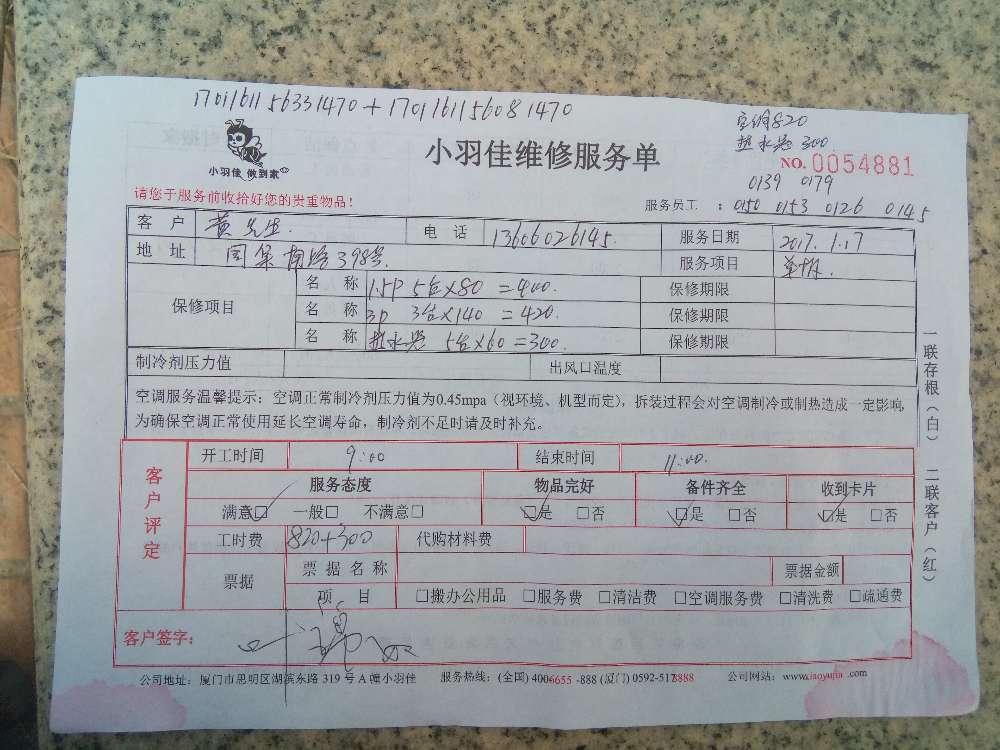 17011611 56331470 + 17011611 56081470
空调820
热水器 300
小羽佳 做到家
小羽佳维修服务单
NO.0054881
0139 0179
请您于服务前收拾好您的贵重物品！
服务员工 ： 0150 0153 0126 0145
客 户 黄先生. 电 话 13606026145. 服务日期 2017.1.17
地 址 南路398号. 服务项目
保修项目 名 称 1.5P 5台×80 =400. 保修期限
名 称 3P 3台×140 =420. 保修期限
名 称 热水器 5台×60=300. 保修期限
制冷剂压力值 出风口温度
空调服务温馨提示：空调正常制冷剂压力值为0.45mpa（视环境、机型而定），拆装过程会对空调制冷或制热造成一定影响，
为确保空调正常使用延长空调寿命，制冷剂不足时请及时补充。
一联存根（白） 二联客户（红）
客户评定
开工时间 9:00 结束时间 11:00.
服务态度 物品完好 备件齐全 收到卡片
满意☑ 一般□ 不满意□ ☑是 □否 ☑是 □否 ☑是 □否
工时费 820+300 代购材料费
票据 票 据 名 称 票据金额
项 目 □搬办公用品 □服务费 □清洁费 □空调服务费 □清洗费 □疏通费
客户签字：
公司地址：厦门市思明区湖滨东路 319 号 A 幢小羽佳 服务热线：(全国) 4006655 -888 (厦门) 0592-5178888 公司网站：www.xiaoyujia .com